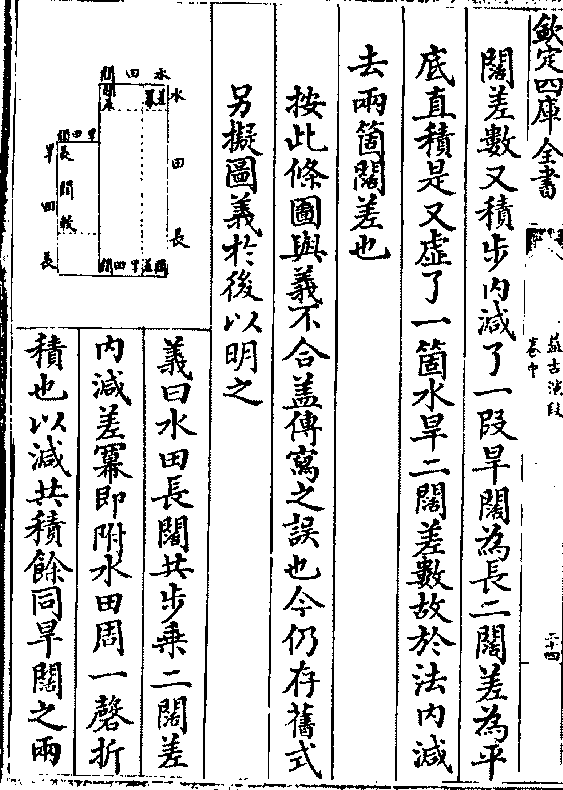 欽定四庫全書
益古演段
卷中
二十四
闊差數又積步内減了一段旱闊為長二闊差為平
底直積是又虛了一箇水旱二闊差數故於法内減
去兩箇闊差也
按此條圖與義不合盖傳寫之誤也今仍存舊式
另擬圖義於後以明之
水田
水田長
差冪
旱田闊
旱田長
長闊較
義曰水田長闊共步乘二闊差
内減差冪即附水田周一磬折
積也以減共積餘同旱闊之兩